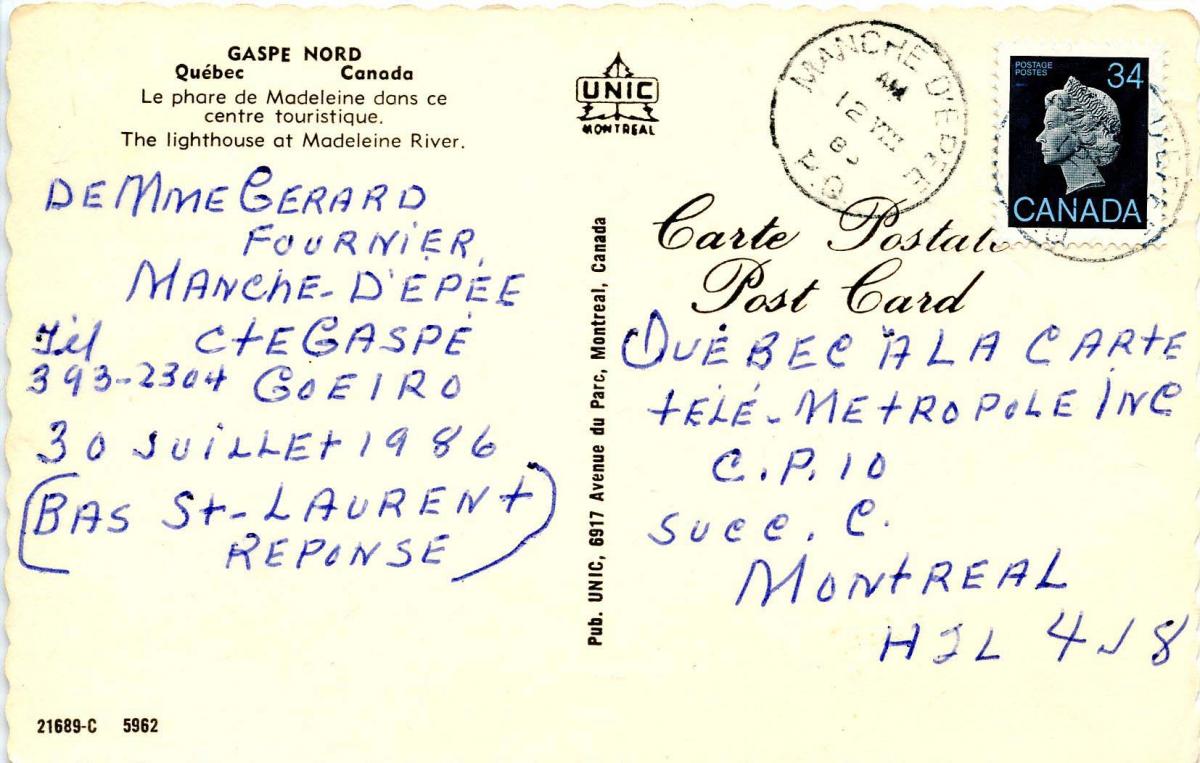 GASPE NORD
Québec Canada
Le phare de Madeleine dans ce
centre touristique.
The lighthouse at Madeleine River.
DE MME GERARD
FOURNIER,
MANCHE-D'EPÉE
Tél CTE GASPÉ
393-2304 GOEIRO
30 JUILLET 1986
(BAS St-LAURENT
REPONSE)
21689-C 5962
UNIC
MONTREAL
Pub. UNIC, 6917 Avenue du Parc, Montreal, Canada
MANCHE D'EPEE
AM
12 VIII
POSTAGE
POSTES
34
CANADA
Carte Postale
Post Card
QUÉBEC A LA CARTE
TÉLÉ-METROPOLE INC
C.P. 10
SUCC. C.
MONTREAL
H2L 4J8